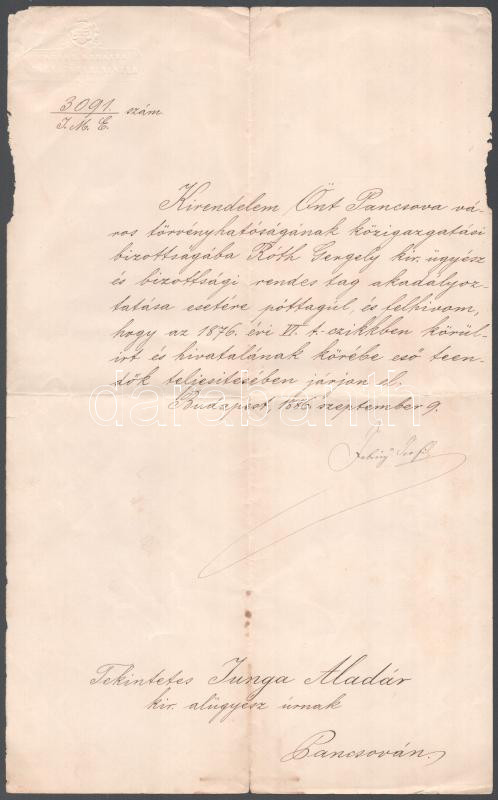 3091. szám
I. M. E.
Kirendelem Önt Pancsova vá-
ros törvényhatóságának közigazgatási
bizottságába Róth Gergely kir. ügyész
és bizottsági rendes tag akadályoz-
tatása esetére póttagúl, és felhivom,
hogy az 1876. évi VI. t-czikkben körül-
irt és hivatalának körébe eső teen-
dők teljesitésében járjon el.
Budapest, 1886. szeptember 9.
darabanth
Tekintetes Junga Aladár
kir. alügyész úrnak
Pancsován.